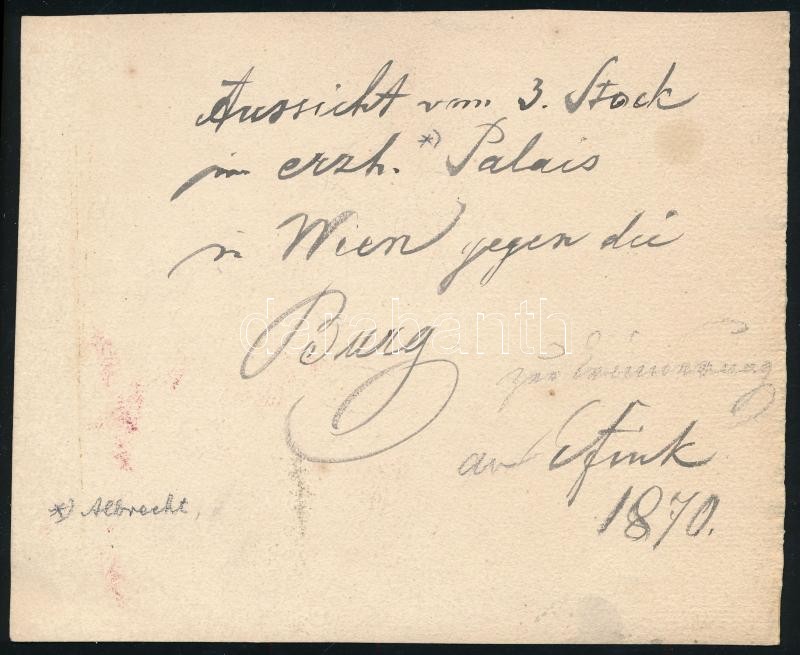 Aussicht vom 3. Stock
im erzh. *) Palais
in Wien gegen die
Burg
darabanth
zur Erinnerung
an Efink
1870.
*) Albrecht,